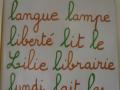 langue lampe
liberté lit le
Lilie librairie
lundi lait le